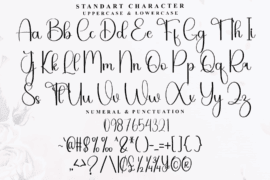 STANDART CHARACTER
UPPERCASE & LOWERCASE
Aa Bb Cc Dd Ee Ff Gg Hh Ii
Jj Kk Ll Mm Nn Oo Pp Qq Rr
Ss Tt Uu Vv Ww Xx Yy Zz
NUMERAL & PUNCTUATION
0987654321